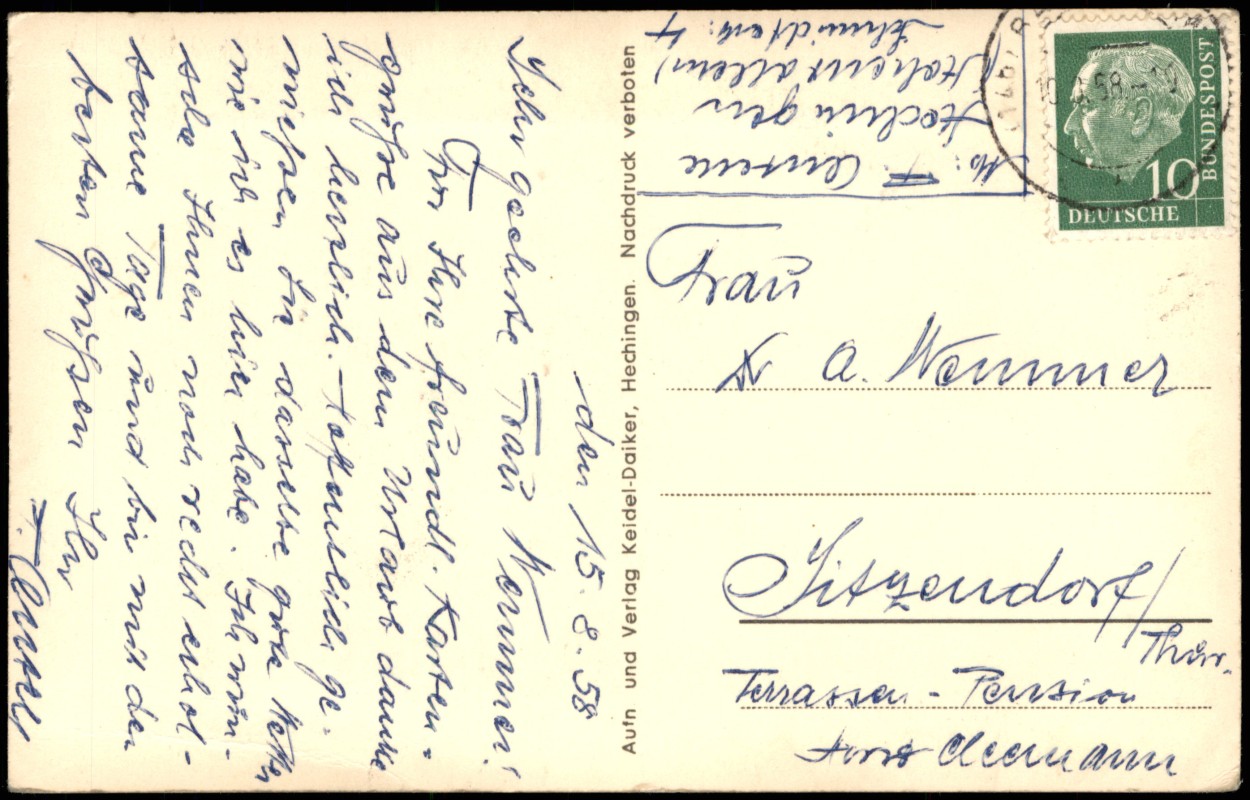 den 15. 8. 58
Sehr geehrte Frau Wemmer!
Für Ihre freundl. Karten-
grüße aus dem Urlaub danke
ich herzlich. Hoffentlich ge-
niessen Sie dasselbe gute Wetter
wie ich es hier habe. Ich wün-
sche Ihnen noch recht erhol-
same Tage und bin mit den
besten Grüßen Ihr
F.
Aufn und Verlag Keidel-Daiker, Hechingen. Nachdruck verboten
Ab: F.
Hechingen
(Hohenzollern)
4
58
10
DEUTSCHE
BUNDESPOST
Frau
Dr A. Wemmer
Sitzendorf/
Thür.
Terrassen-Pension